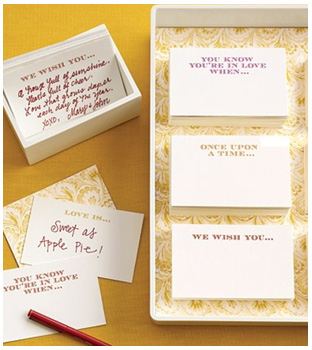 WE WISH YOU...
A house full of sunshine.
Hearts full of cheer.
Love that grows deeper
each day of the year.
XOXO, Mary + John
YOU KNOW
YOU'RE IN LOVE
WHEN...
ONCE UPON
A TIME...
WE WISH YOU...
LOVE IS...
Sweet as
Apple Pie!
YOU KNOW
YOU'RE IN LOVE
WHEN...